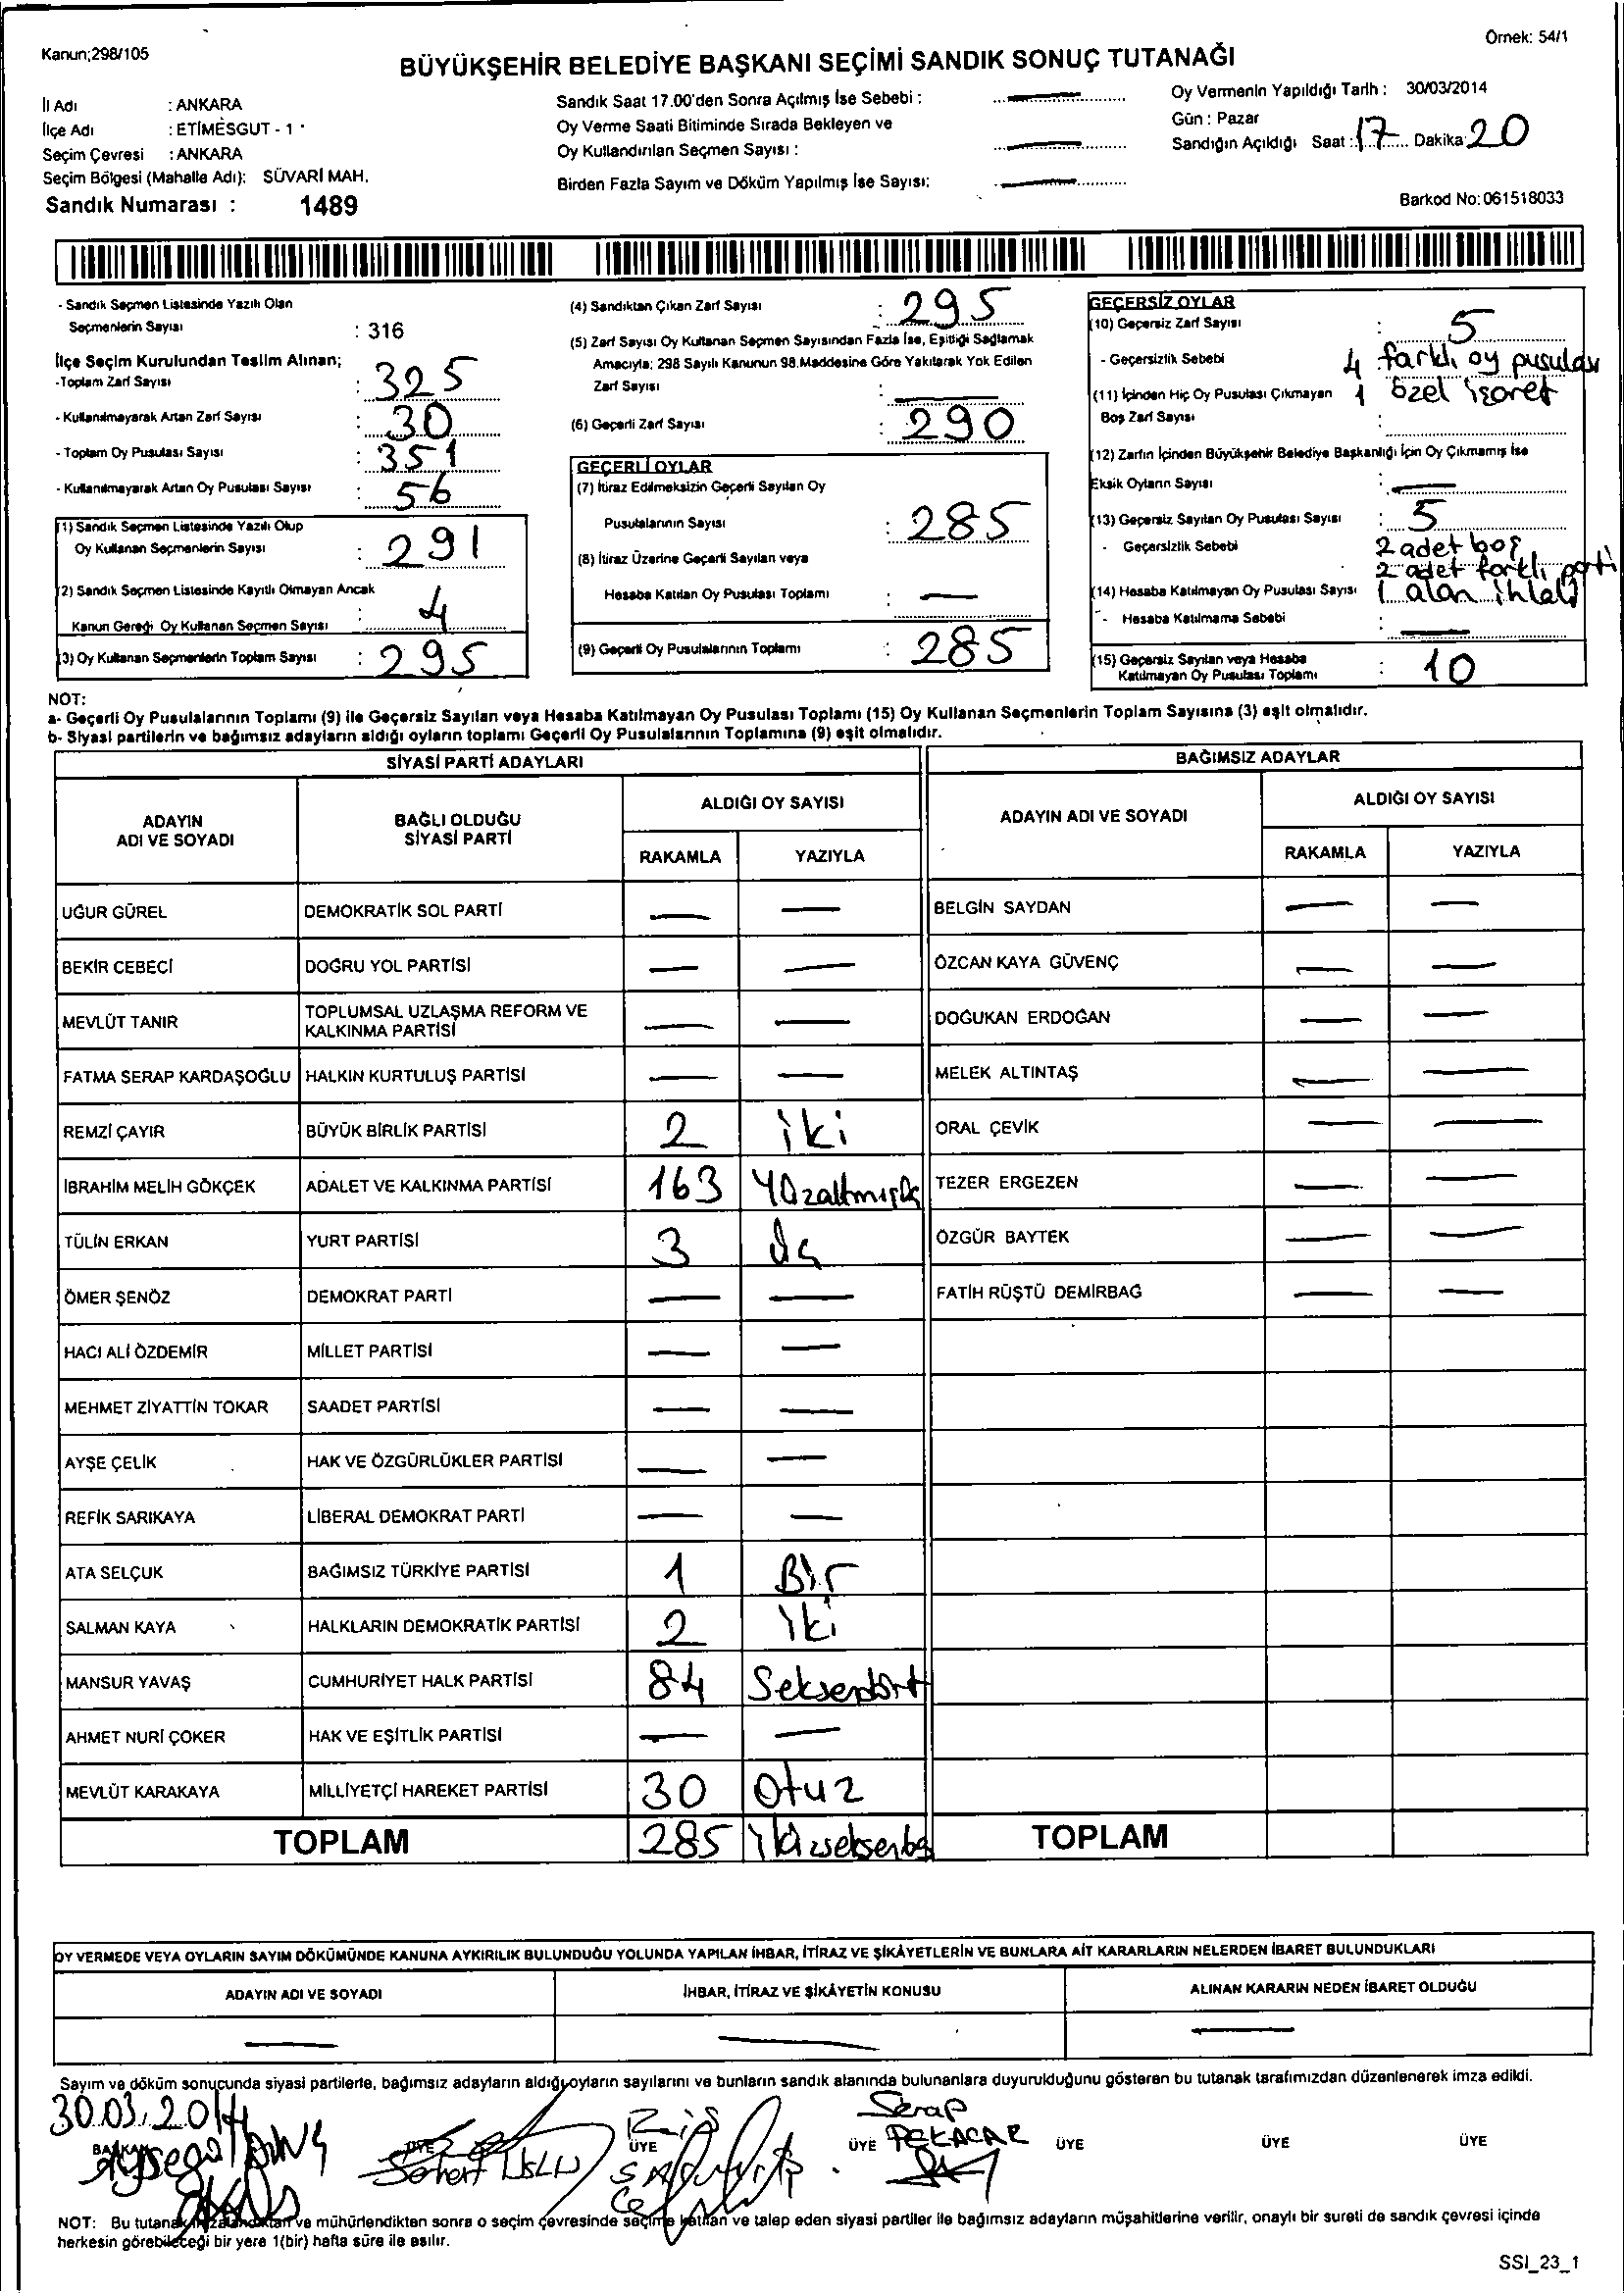 Kanun;298/105
Örnek: 54/1
BÜYÜKŞEHİR BELEDİYE BAŞKANI SEÇİMİ SANDIK SONUÇ TUTANAĞI
İl Adı : ANKARA
İlçe Adı : ETİMESGUT - 1
Seçim Çevresi : ANKARA
Seçim Bölgesi (Mahalle Adı): SÜVARİ MAH.
Sandık Numarası : 1489
Sandık Saat 17.00'den Sonra Açılmış İse Sebebi :
Oy Verme Saati Bitiminde Sırada Bekleyen ve
Oy Kullandırılan Seçmen Sayısı :
Birden Fazla Sayım ve Döküm Yapılmış İse Sayısı:
Oy Vermenin Yapıldığı Tarih : 30/03/2014
Gün : Pazar
Sandığın Açıldığı Saat : 17 Dakika 20
Barkod No:061518033
- Sandık Seçmen Listesinde Yazılı Olan
Seçmenlerin Sayısı : 316
İlçe Seçim Kurulundan Teslim Alınan;
-Toplam Zarf Sayısı : 325
- Kullanılmayarak Artan Zarf Sayısı : 30
- Toplam Oy Pusulası Sayısı : 351
- Kullanılmayarak Artan Oy Pusulası Sayısı : 56
(1) Sandık Seçmen Listesinde Yazılı Olup
Oy Kullanan Seçmenlerin Sayısı : 291
(2) Sandık Seçmen Listesinde Kayıtlı Olmayan Ancak
Kanun Gereği Oy Kullanan Seçmen Sayısı : 4
(3) Oy Kullanan Seçmenlerin Toplam Sayısı : 295
(4) Sandıktan Çıkan Zarf Sayısı : 295
(5) Zarf Sayısı Oy Kullanan Seçmen Sayısından Fazla İse, Eşitliği Sağlamak
Amacıyla; 298 Sayılı Kanunun 98.Maddesine Göre Yakılarak Yok Edilen
Zarf Sayısı :
(6) Geçerli Zarf Sayısı : 290
GEÇERLİ OYLAR
(7) İtiraz Edilmeksizin Geçerli Sayılan Oy
Pusulalarının Sayısı : 285
(8) İtiraz Üzerine Geçerli Sayılan veya
Hesaba Katılan Oy Pusulası Toplamı :
(9) Geçerli Oy Pusulalarının Toplamı : 285
GEÇERSİZ OYLAR
(10) Geçersiz Zarf Sayısı : 5
- Geçersizlik Sebebi 4 farklı oy pusulası
1 özel işaret
(11) İçinden Hiç Oy Pusulası Çıkmayan
Boş Zarf Sayısı :
(12) Zarfın İçinden Büyükşehir Belediye Başkanlığı İçin Oy Çıkmamış İse
Eksik Oyların Sayısı :
(13) Geçersiz Sayılan Oy Pusulası Sayısı : 5
- Geçersizlik Sebebi 2 adet boş
2 adet farklı parti
1 alan ihlali
(14) Hesaba Katılmayan Oy Pusulası Sayısı
- Hesaba Katılmama Sebebi :
(15) Geçersiz Sayılan veya Hesaba
Katılmayan Oy Pusulası Toplamı : 10
NOT:
a- Geçerli Oy Pusulalarının Toplamı (9) ile Geçersiz Sayılan veya Hesaba Katılmayan Oy Pusulası Toplamı (15) Oy Kullanan Seçmenlerin Toplam Sayısına (3) eşit olmalıdır.
b- Siyasi partilerin ve bağımsız adayların aldığı oyların toplamı Geçerli Oy Pusulalarının Toplamına (9) eşit olmalıdır.
SİYASİ PARTİ ADAYLARI
ADAYIN ADI VE SOYADI
BAĞLI OLDUĞU SİYASİ PARTİ
ALDIĞI OY SAYISI
RAKAMLA YAZIYLA
UĞUR GÜREL DEMOKRATİK SOL PARTİ
BEKİR CEBECİ DOĞRU YOL PARTİSİ
MEVLÜT TANIR TOPLUMSAL UZLAŞMA REFORM VE KALKINMA PARTİSİ
FATMA SERAP KARDAŞOĞLU HALKIN KURTULUŞ PARTİSİ
REMZİ ÇAYIR BÜYÜK BİRLİK PARTİSİ 2 iki
İBRAHİM MELİH GÖKÇEK ADALET VE KALKINMA PARTİSİ 163 Yüzaltmışüç
TÜLİN ERKAN YURT PARTİSİ 3 üç
ÖMER ŞENÖZ DEMOKRAT PARTİ
HACI ALİ ÖZDEMİR MİLLET PARTİSİ
MEHMET ZİYATTİN TOKAR SAADET PARTİSİ
AYŞE ÇELİK HAK VE ÖZGÜRLÜKLER PARTİSİ
REFİK SARIKAYA LİBERAL DEMOKRAT PARTİ
ATA SELÇUK BAĞIMSIZ TÜRKİYE PARTİSİ 1 Bir
SALMAN KAYA HALKLARIN DEMOKRATİK PARTİSİ 2 iki
MANSUR YAVAŞ CUMHURİYET HALK PARTİSİ 84 Seksendört
AHMET NURİ ÇOKER HAK VE EŞİTLİK PARTİSİ
MEVLÜT KARAKAYA MİLLİYETÇİ HAREKET PARTİSİ 30 otuz
TOPLAM 285 ikiyüzseksenbeş
BAĞIMSIZ ADAYLAR
ADAYIN ADI VE SOYADI
ALDIĞI OY SAYISI
RAKAMLA YAZIYLA
BELGİN SAYDAN
ÖZCAN KAYA GÜVENÇ
DOĞUKAN ERDOĞAN
MELEK ALTINTAŞ
ORAL ÇEVİK
TEZER ERGEZEN
ÖZGÜR BAYTEK
FATİH RÜŞTÜ DEMİRBAĞ
TOPLAM
OY VERMEDE VEYA OYLARIN SAYIM DÖKÜMÜNDE KANUNA AYKIRILIK BULUNDUĞU YOLUNDA YAPILAN İHBAR, İTİRAZ VE ŞİKÂYETLERİN VE BUNLARA AİT KARARLARIN NELERDEN İBARET BULUNDUKLARI
ADAYIN ADI VE SOYADI İHBAR, İTİRAZ VE ŞİKÂYETİN KONUSU ALINAN KARARIN NEDEN İBARET OLDUĞU
Sayım ve döküm sonucunda siyasi partilerle, bağımsız adayların aldığı oyların sayılarını ve bunların sandık alanında bulunanlara duyurulduğunu gösteren bu tutanak tarafımızdan düzenlenerek imza edildi.
30.03.2014
Serap
PEKACAR
BAŞKAN ÜYE ÜYE ÜYE ÜYE ÜYE ÜYE
NOT: Bu tutanak imzalandıktan ve mühürlendikten sonra o seçim çevresinde seçime katılan ve talep eden siyasi partiler ile bağımsız adayların müşahitlerine verilir, onaylı bir sureti de sandık çevresi içinde
herkesin görebileceği bir yere 1(bir) hafta süre ile asılır.
SSI_23_1